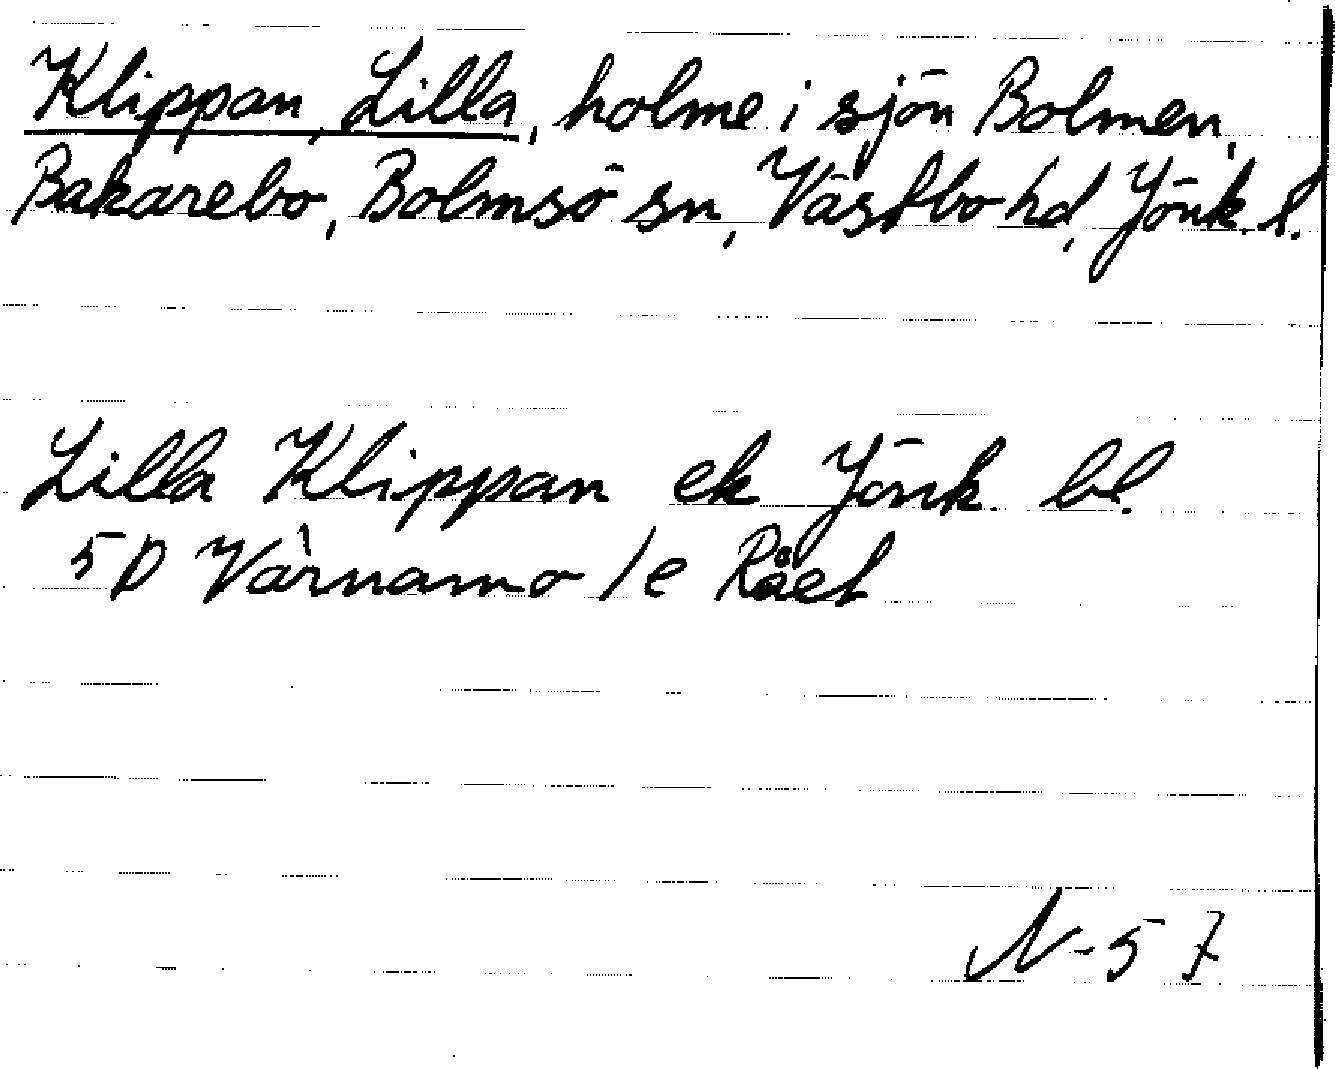 Klippan, Lilla, holme i sjön Bolmen,
Bakarebo, Bolmsö sn, Västbo hd, Jönk. l.
Lilla Klippan ek Jönk. bl.
5D Värnamo /e Rået
N-57